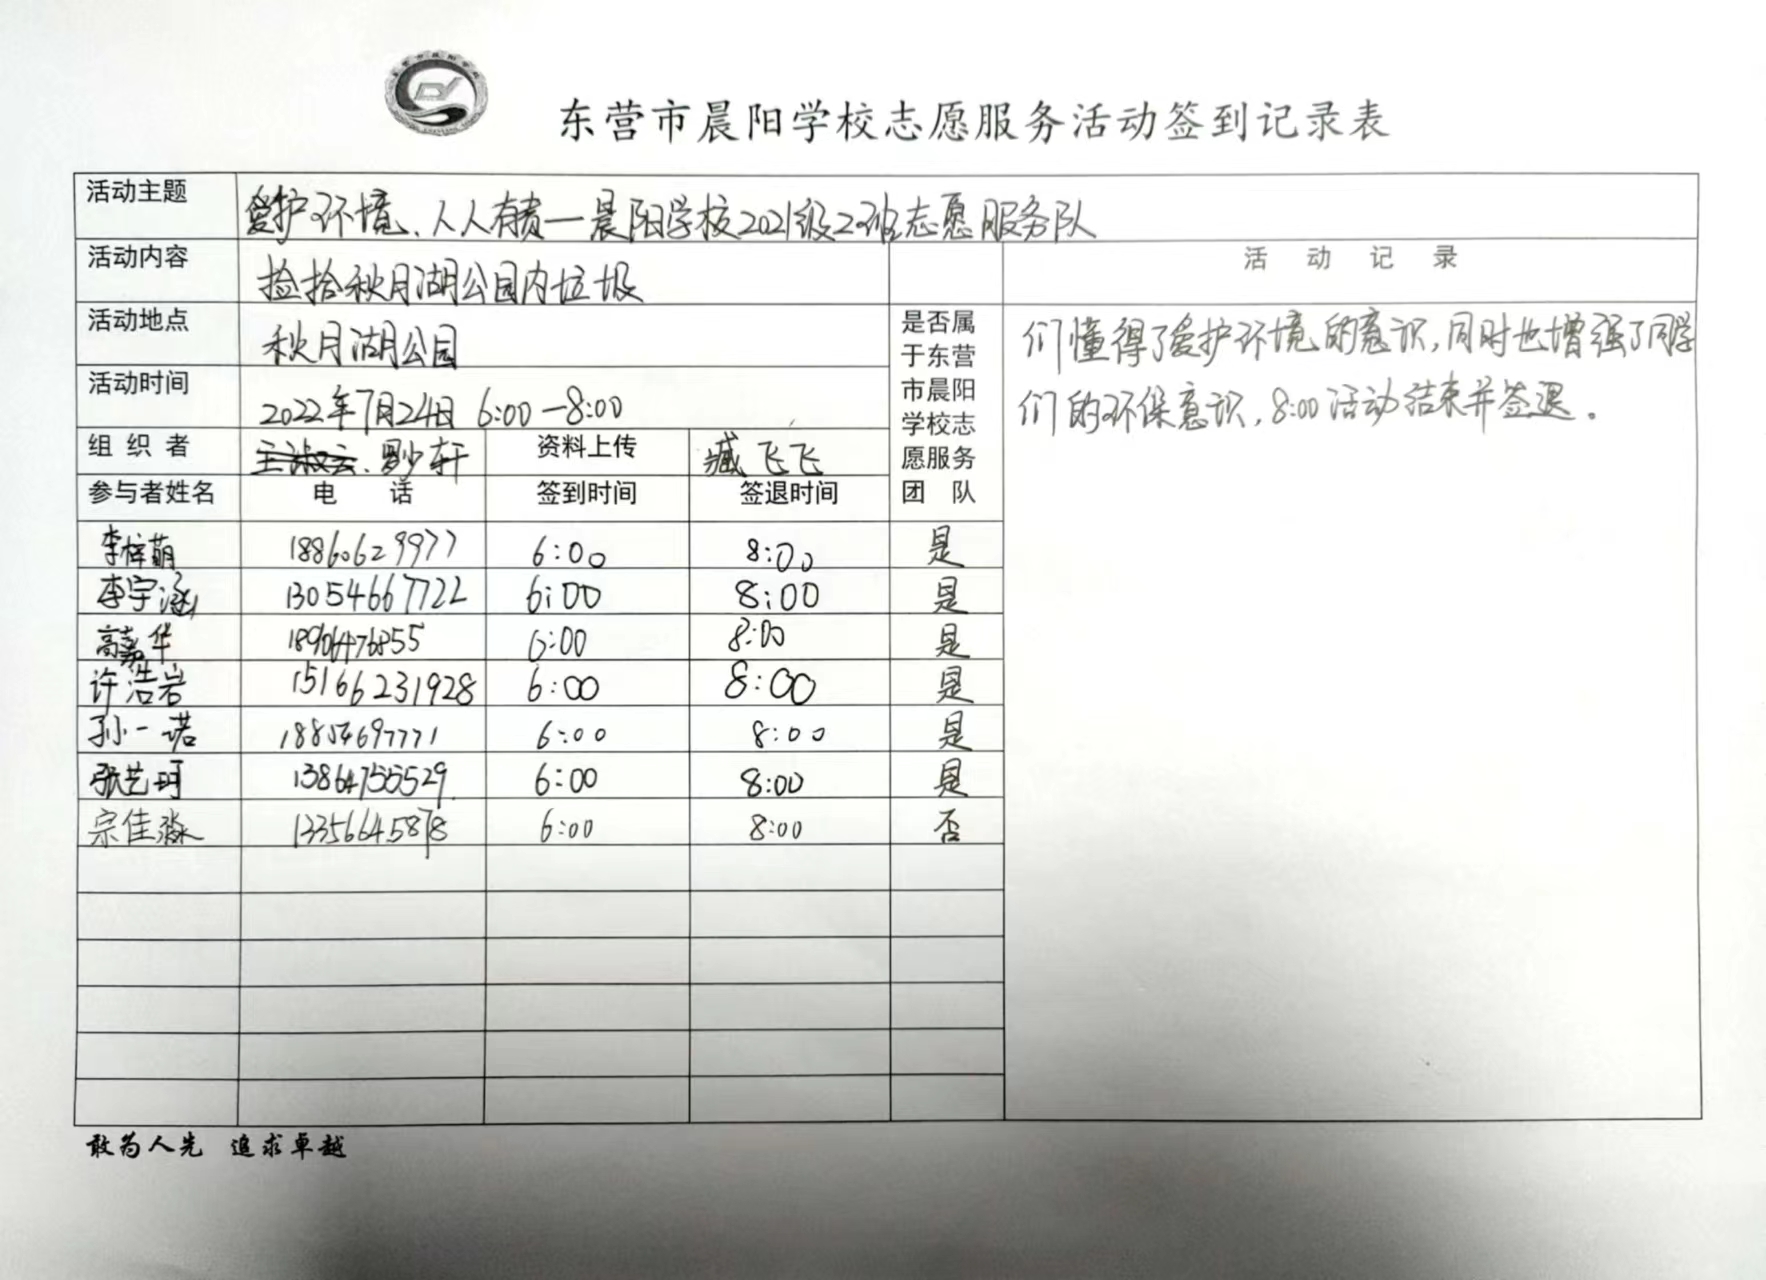 东营市晨阳学校志愿服务活动签到记录表
活动主题 爱护环境、人人有责—晨阳学校2021级2班志愿服务队
活动内容 捡拾秋月湖公园内垃圾
活动记录
活动地点 秋月湖公园
活动时间 2022年7月24日 6:00—8:00
组织者 资料上传 臧飞飞
参与者姓名 电话 签到时间 签退时间 是否属于东营市晨阳学校志愿服务团队
李梓萌 18860629977 6:00 8:00 是
李宇涵 13054667722 6:00 8:00 是
高嘉华 18906476855 6:00 8:00 是
许浩岩 15166231928 6:00 8:00 是
孙一诺 18854697771 6:00 8:00 是
张艺珂 13864755529 6:00 8:00 是
宗佳淼 13356645878 6:00 8:00 否
们懂得了爱护环境的意识,同时也增强了同学
们的环保意识,8:00活动结束并签退。
敢为人先 追求卓越